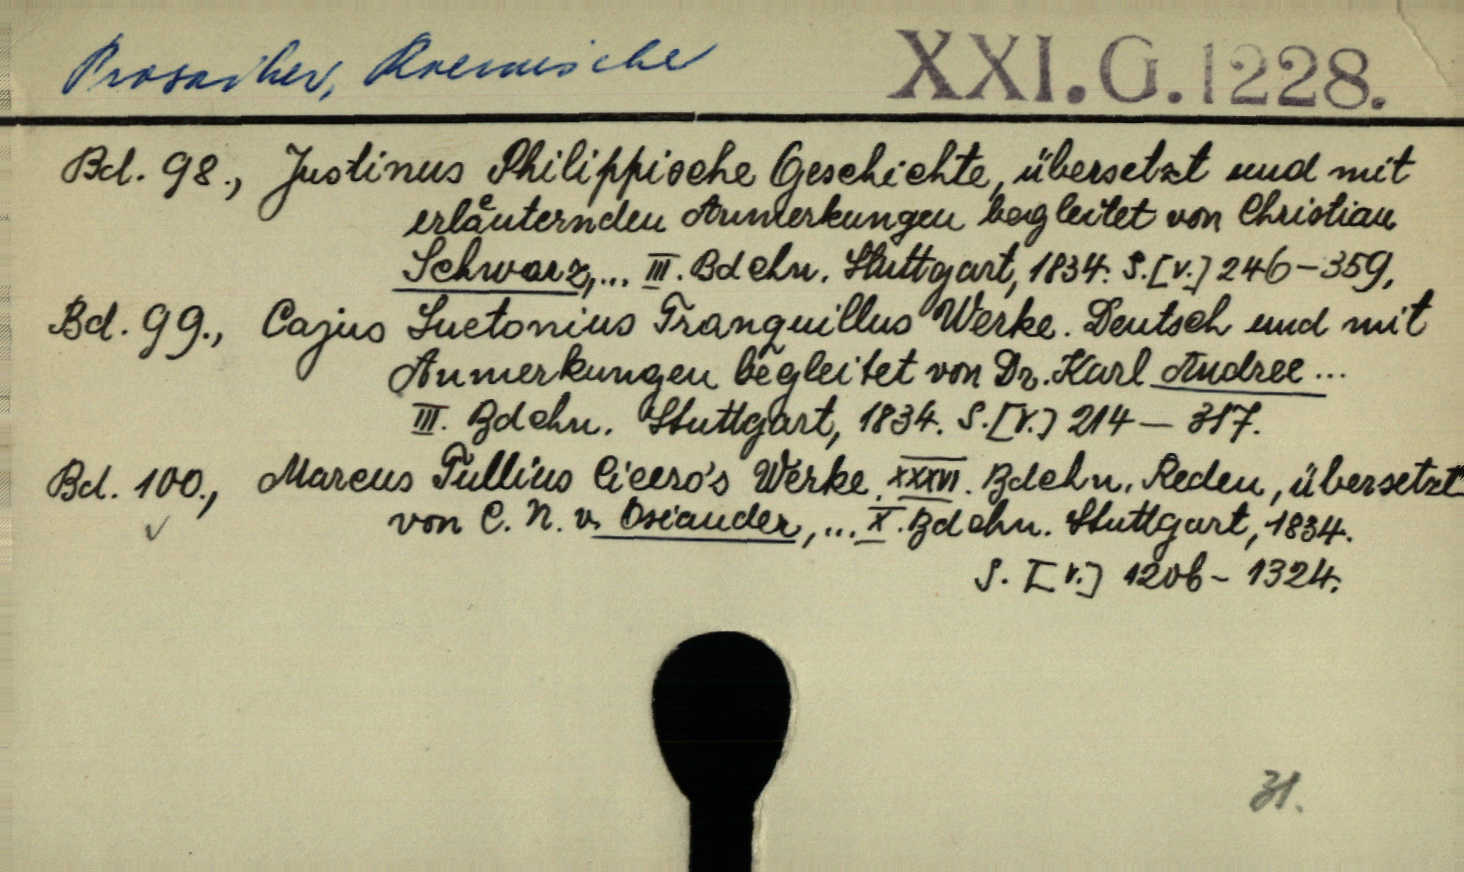 Prosaiker, Roemische
XXI.G.1228.
Bd. 98., Justinus Philippische Geschichte, übersetzt und mit
erläuternden Anmerkungen begleitet von Christian
Schwarz,... III. Bdchn. Stuttgart, 1834. S.[v.] 246-359.
Bd. 99., Cajus Suetonius Tranquillus Werke. Deutsch und mit
Anmerkungen begleitet von Dr. Karl Andree ...
III. Bdchn. Stuttgart, 1834. S.[v.] 214 - 317.
Bd. 100., Marcus Tullius Cicero's Werke. XXXVI. Bdchn. Reden, übersetzt
von C. N. v. Osiander, ... X. Bdchn. Stuttgart, 1834.
S. [v.] 1206 - 1324.
31.